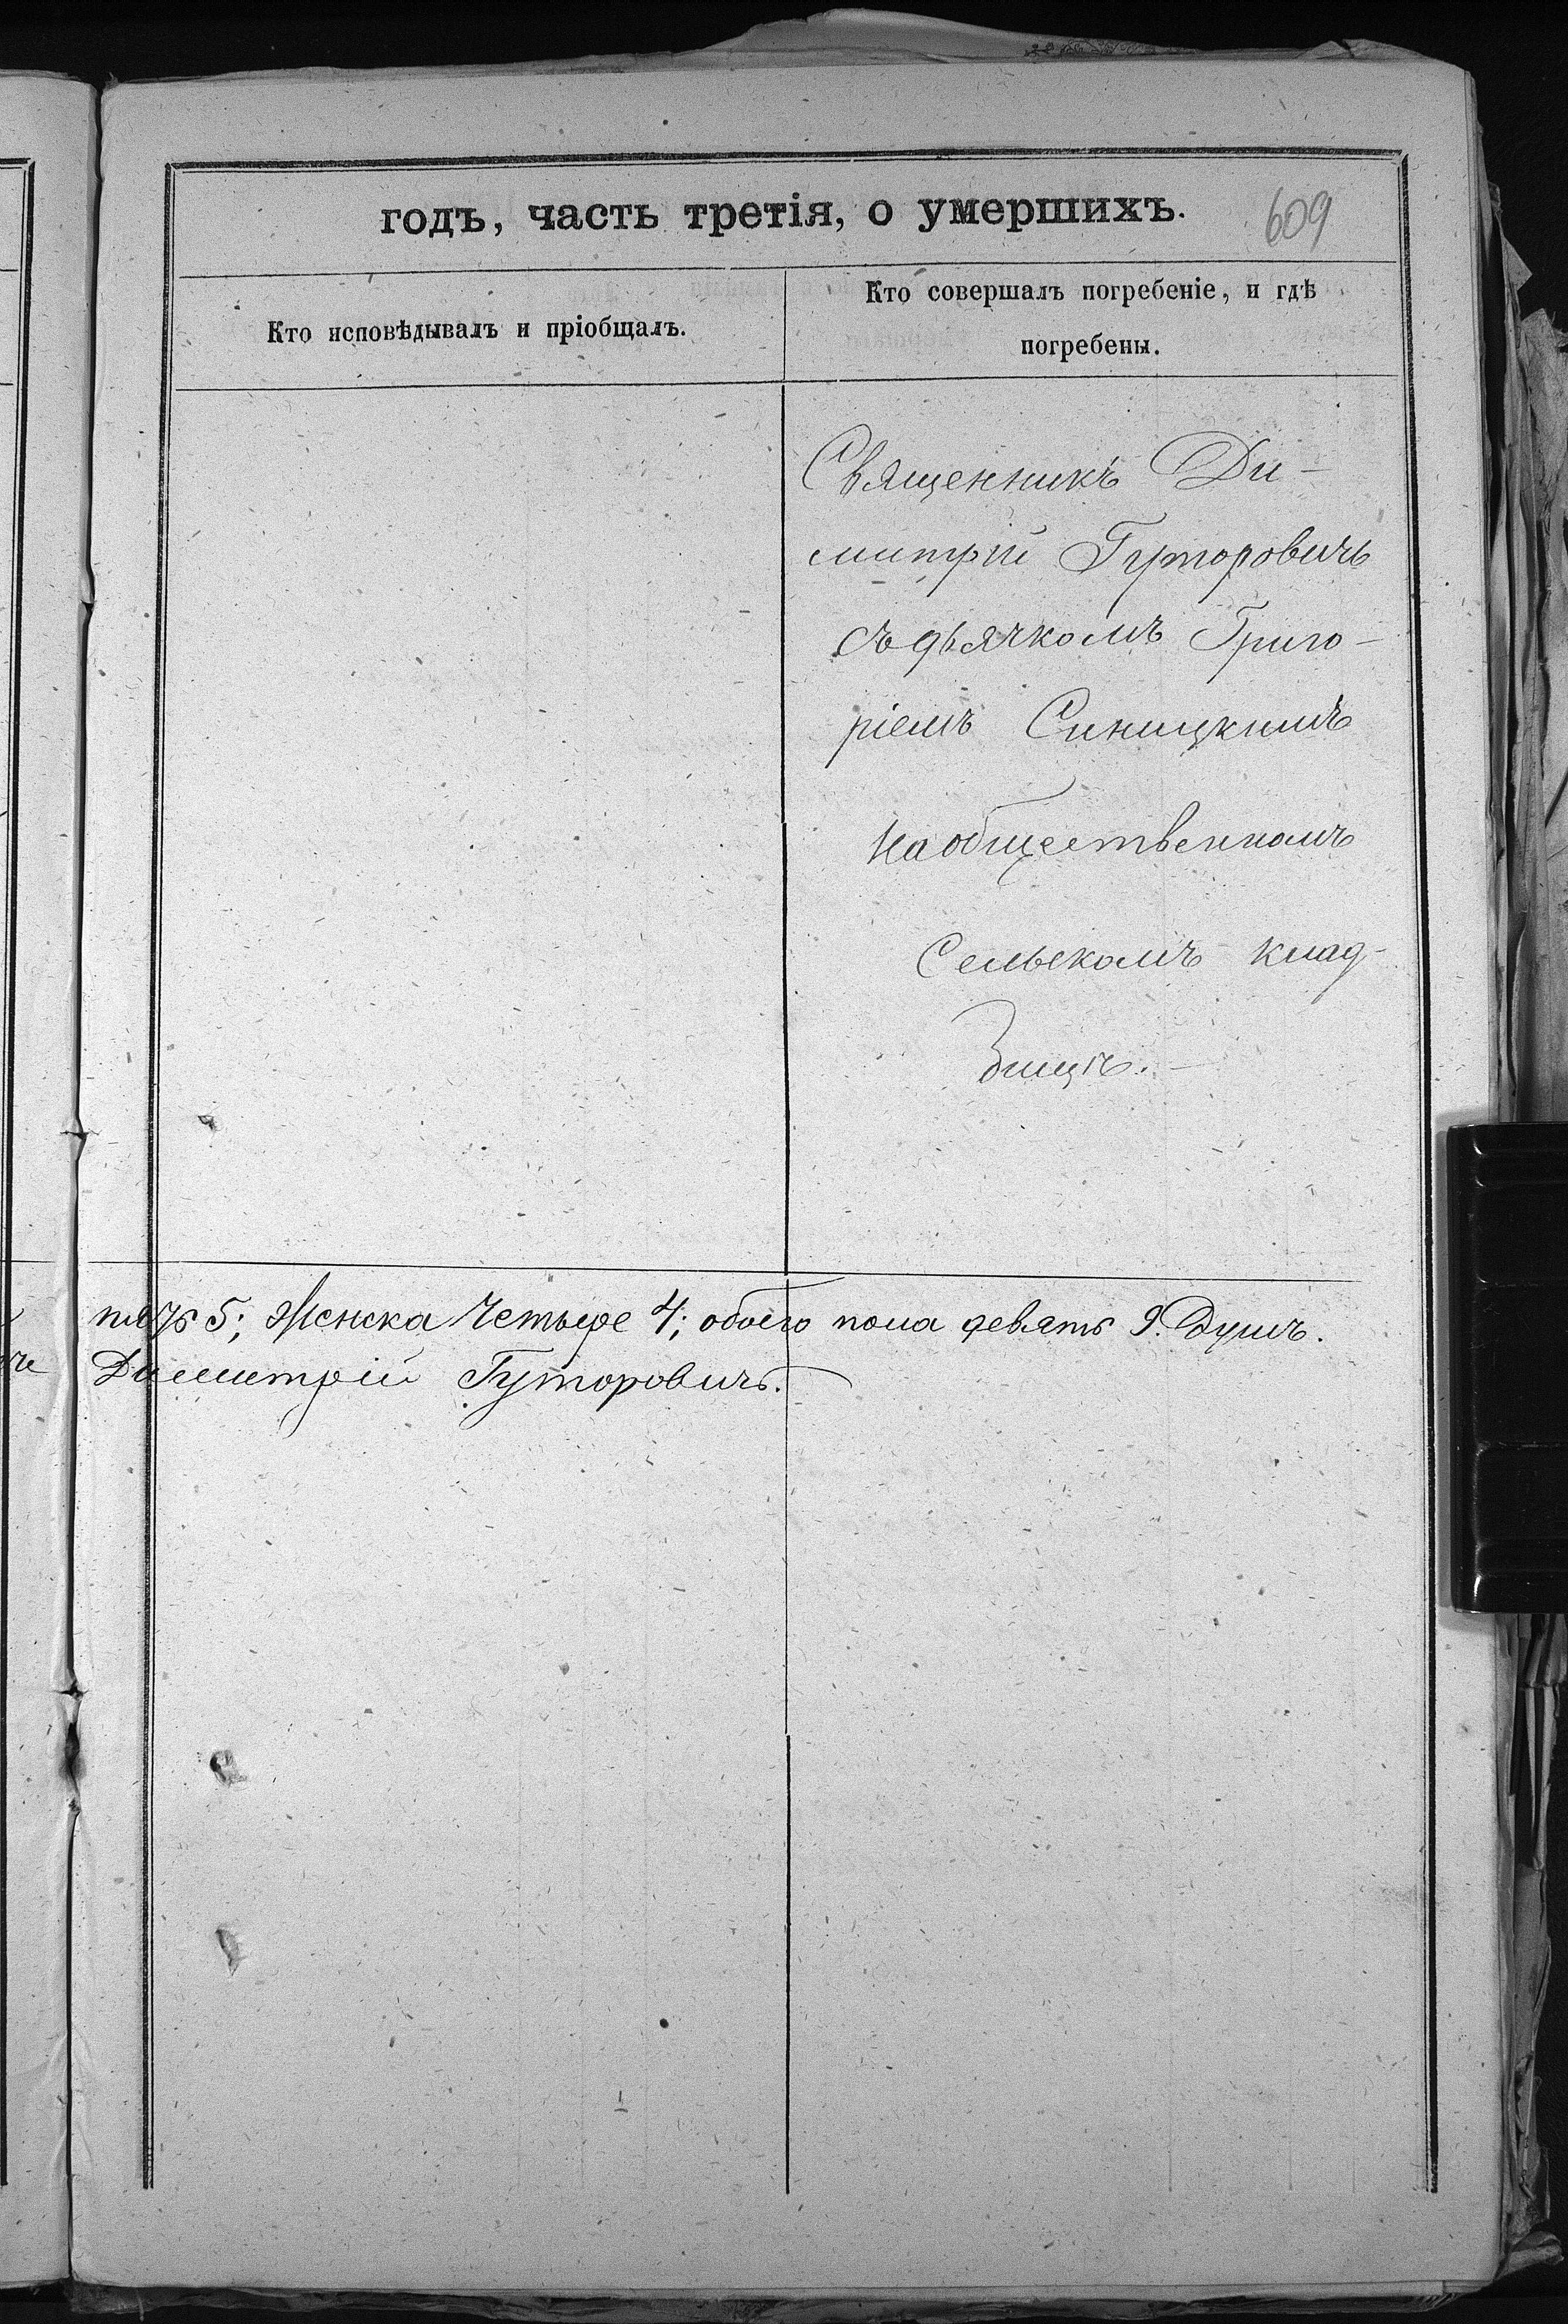 годъ, часть третія, о умершихъ.
609
Кто исповѣдывалъ и пріобщалъ.
Кто совершалъ погребеніе, и гдѣ
погребены.
Священникъ Ди-
митрій Гуторовичъ
съ дьячкомъ Григо-
ріемъ Синицкимъ
на общественномъ
Сельскомъ клад-
бищѣ.
пять 5; Женска Четыре 4; обоего пола девять 9. Душъ.
Димитрій Гуторовичъ.